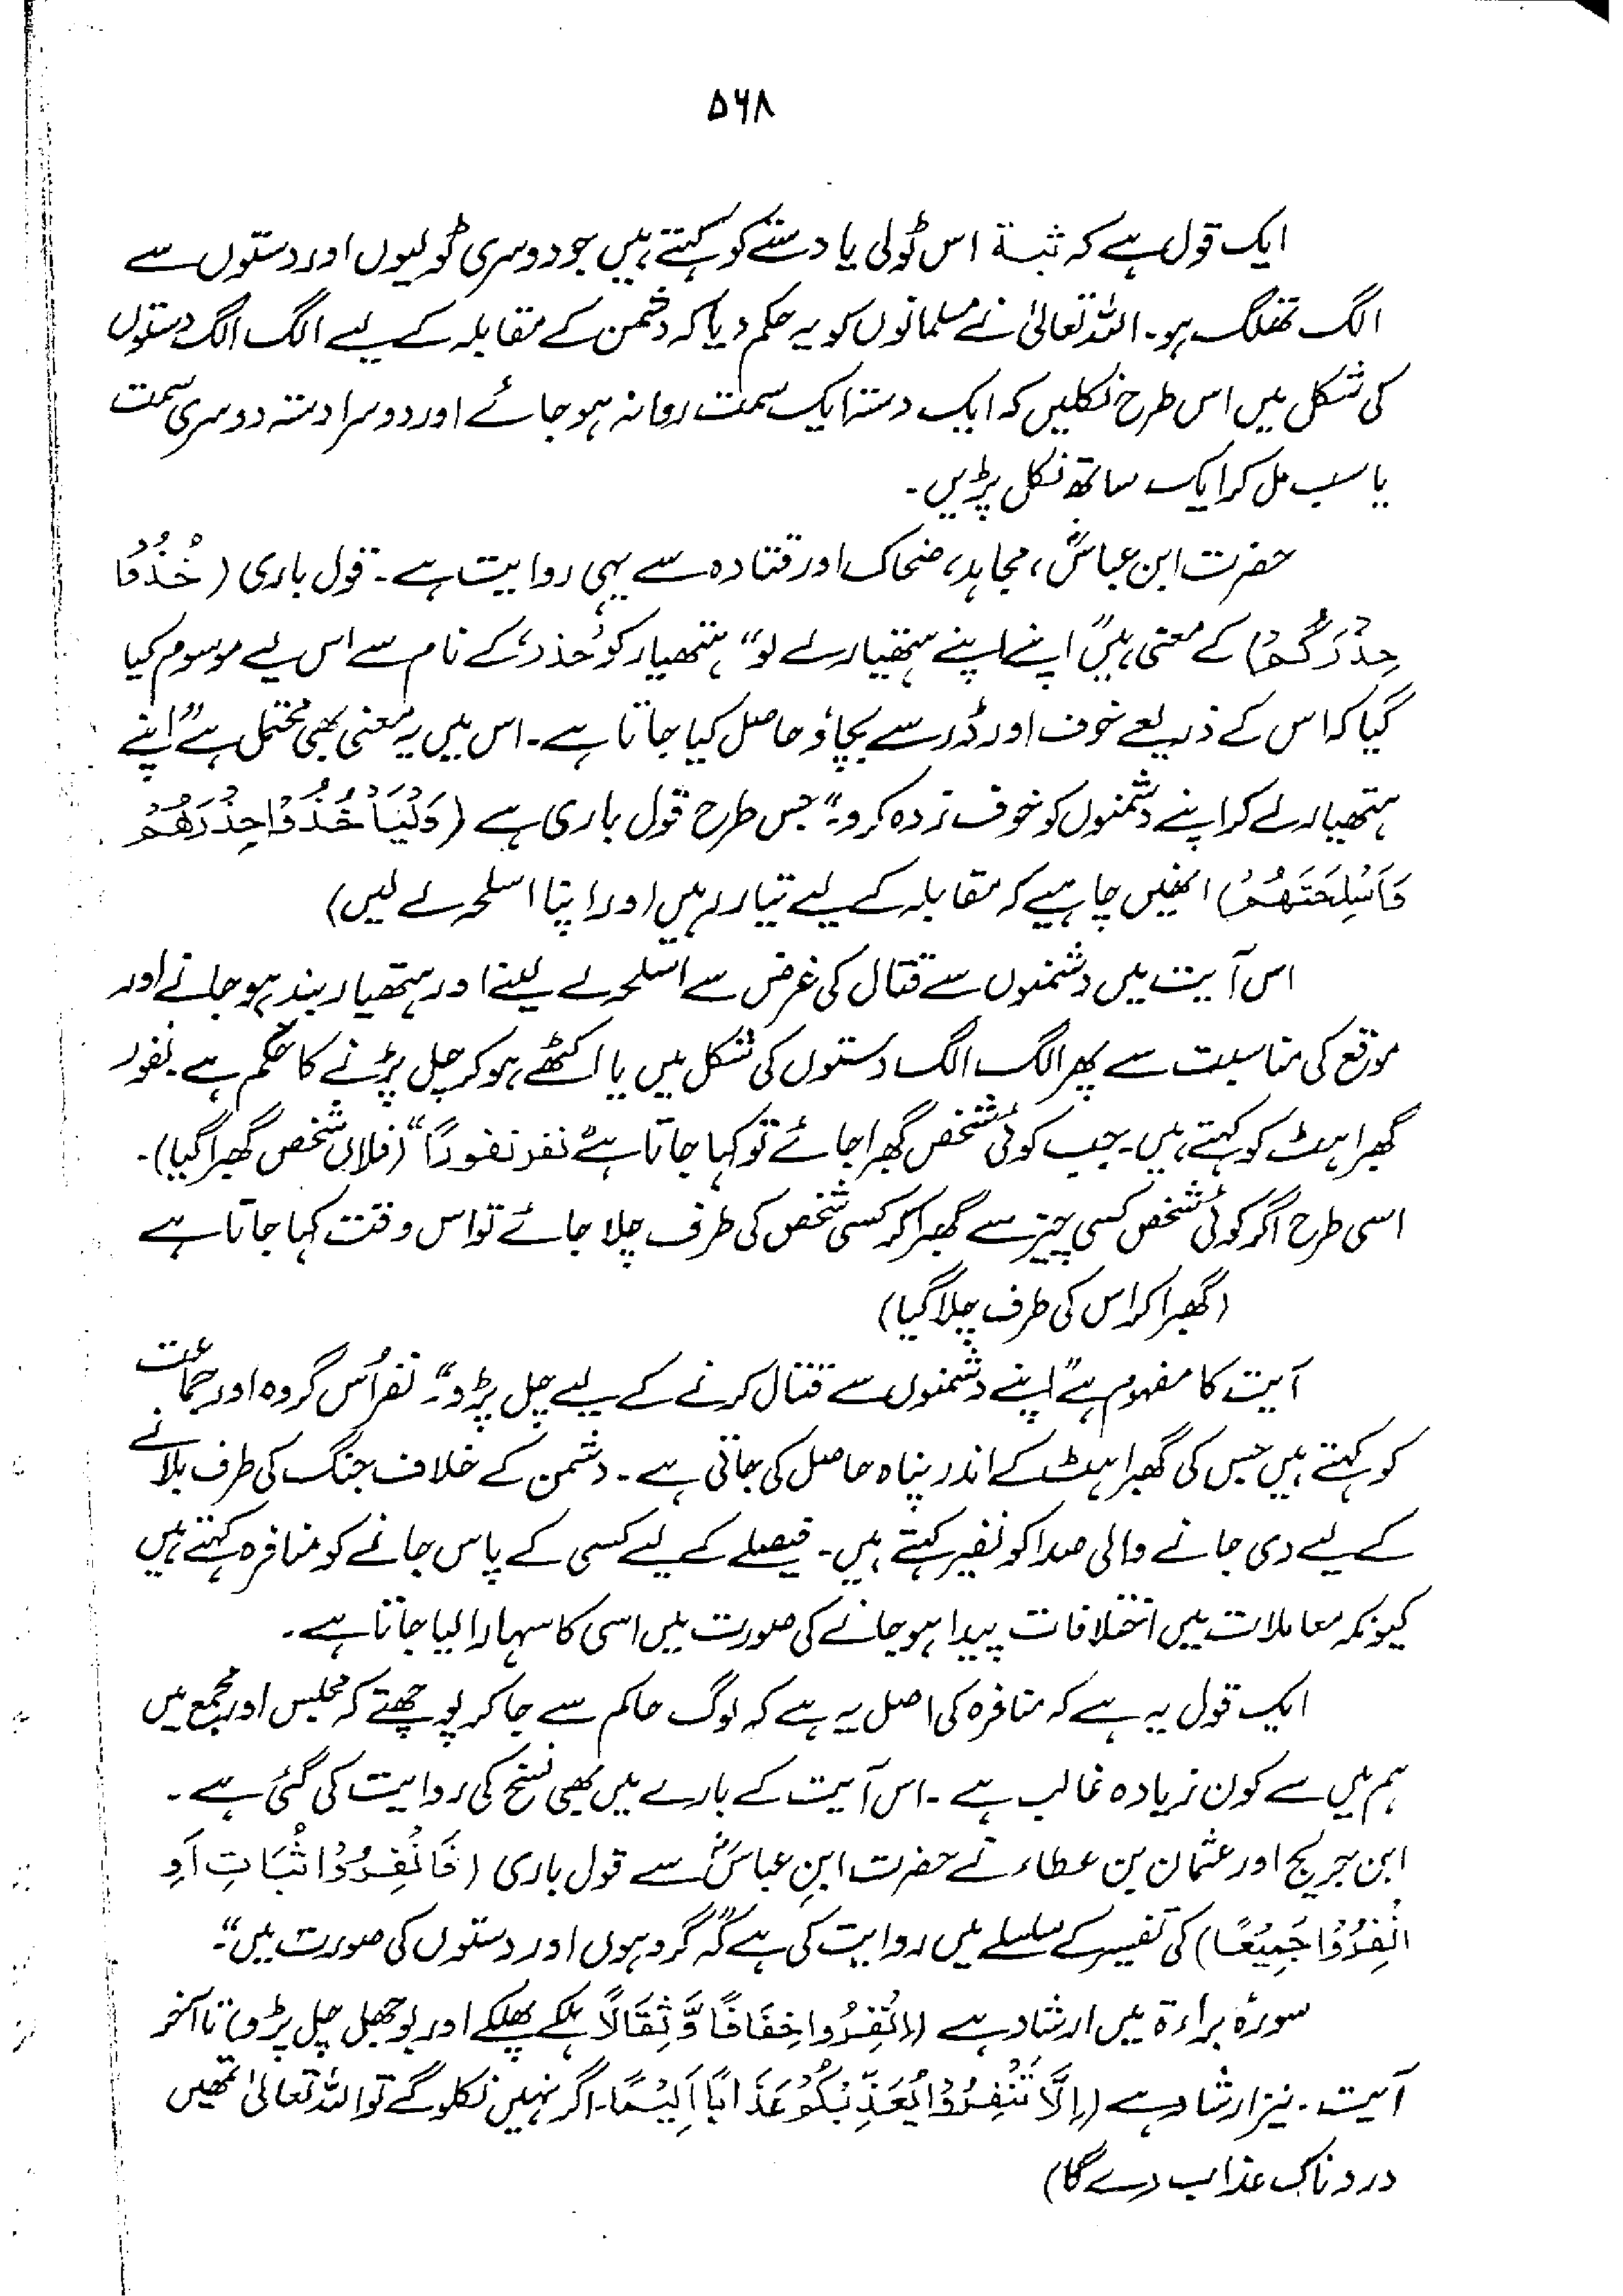 ۵۶۸
ایک قول ہے کہ ثبۃ اس ٹولی یا دستے کو کہتے ہیں جو دوسری ٹولیوں اور دستوں سے
الگ تھلگ ہو۔ اللہ تعالیٰ نے مسلمانوں کو یہ حکم دیا کہ دشمن کے مقابلہ کے لیے الگ الگ دستوں
کی شکل میں اس طرح نکلیں کہ ایک دستہ ایک سمت روانہ ہو جائے اور دوسرا دستہ دوسری سمت
یا سب مل کر ایک ساتھ نکل پڑیں۔
حضرت ابن عباسؓ، مجاہد، ضحاک اور قتادہ سے یہی روایت ہے۔ قول باری (خُذُوْا
حِذْرَكُمْ) کے معنی ہیں "اپنے اپنے ہتھیار لے لو" ہتھیار کو 'حذر' کے نام سے اس لیے موسوم کیا
گیا کہ اس کے ذریعے خوف اور ڈر سے بچاؤ حاصل کیا جاتا ہے۔ اس میں یہ معنی بھی محتمل ہے "اپنے
ہتھیار لے کر اپنے دشمنوں کو خوف زدہ کرو۔" جس طرح قول باری ہے (وَلْيَأْخُذُوْا حِذْرَهُمْ
وَاَسْلِحَتَهُمْ) انھیں چاہیے کہ مقابلہ کے لیے تیار رہیں اور اپنا اسلحہ لے لیں)
اس آیت میں دشمنوں سے قتال کی غرض سے اسلحہ لے لینے اور ہتھیار بند ہو جانے اور
موقع کی مناسبت سے پھر الگ الگ دستوں کی شکل میں یا اکٹھے ہو کر چل پڑنے کا حکم ہے۔ نفور
گھبراہٹ کو کہتے ہیں۔ جب کوئی شخص گھبرا جائے تو کہا جاتا ہے "نفر نفورًا" (فلاں شخص گھبرا گیا)۔
اسی طرح اگر کوئی شخص کسی چیز سے گھبرا کر کسی شخص کی طرف چلا جائے تو اس وقت کہا جاتا ہے
(گھبرا کر اس کی طرف چلا گیا)
آیت کا مفہوم ہے "اپنے دشمنوں سے قتال کرنے کے لیے چل پڑو۔" نفر اُس گروہ اور جماعت
کو کہتے ہیں جس کی گھبراہٹ کے اندر پناہ حاصل کی جاتی ہے۔ دشمن کے خلاف جنگ کی طرف بلانے
کے لیے دی جانے والی صدا کو نفیر کہتے ہیں۔ فیصلے کے لیے کسی کے پاس جانے کو منافرہ کہتے ہیں
کیونکہ معاملات میں اختلافات پیدا ہو جانے کی صورت میں اسی کا سہارا لیا جاتا ہے۔
ایک قول یہ ہے کہ منافرہ کی اصل یہ ہے کہ لوگ حاکم سے جا کر پوچھتے کہ مجلس اور مجمع میں
ہم میں سے کون زیادہ غالب ہے۔ اس آیت کے بارے میں بھی نسخ کی روایت کی گئی ہے۔
ابن جریج اور عثمان بن عطاء نے حضرت ابنِ عباسؓ سے قول باری (فَانْفِرُوْا ثُبَاتٍ اَوِ
انْفِرُوْا جَمِيْعًا) کی تفسیر کے سلسلے میں روایت کی ہے کہ "گروہوں اور دستوں کی صورت میں"۔
سورۂ براءۃ میں ارشاد ہے (اِنْفِرُوا خِفَافًا وَّثِقَالًا ہلکے پھلکے اور بوجھل چل پڑو) تا آخر
آیت۔ نیز ارشاد ہے (اِلَّا تَنْفِرُوْا يُعَذِّبْكُمْ عَذَابًا اَلِيْمًا۔ اگر نہیں نکلو گے تو اللہ تعالیٰ تمھیں
دردناک عذاب دے گا)